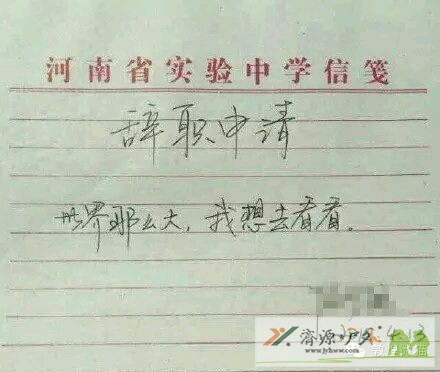 河南省实验中学信笺
辞职申请
世界那么大，我想去看看。
www.jyhww.com